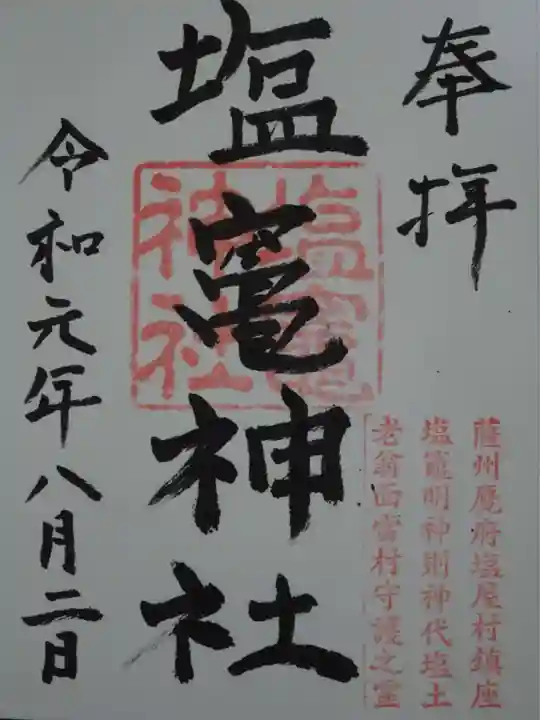 奉拝
塩竈神社
塩竈
神社
令和元年八月二日
薩州麑府塩屋村鎮座
塩竈明神則神代塩土
老翁而當村守護之霊